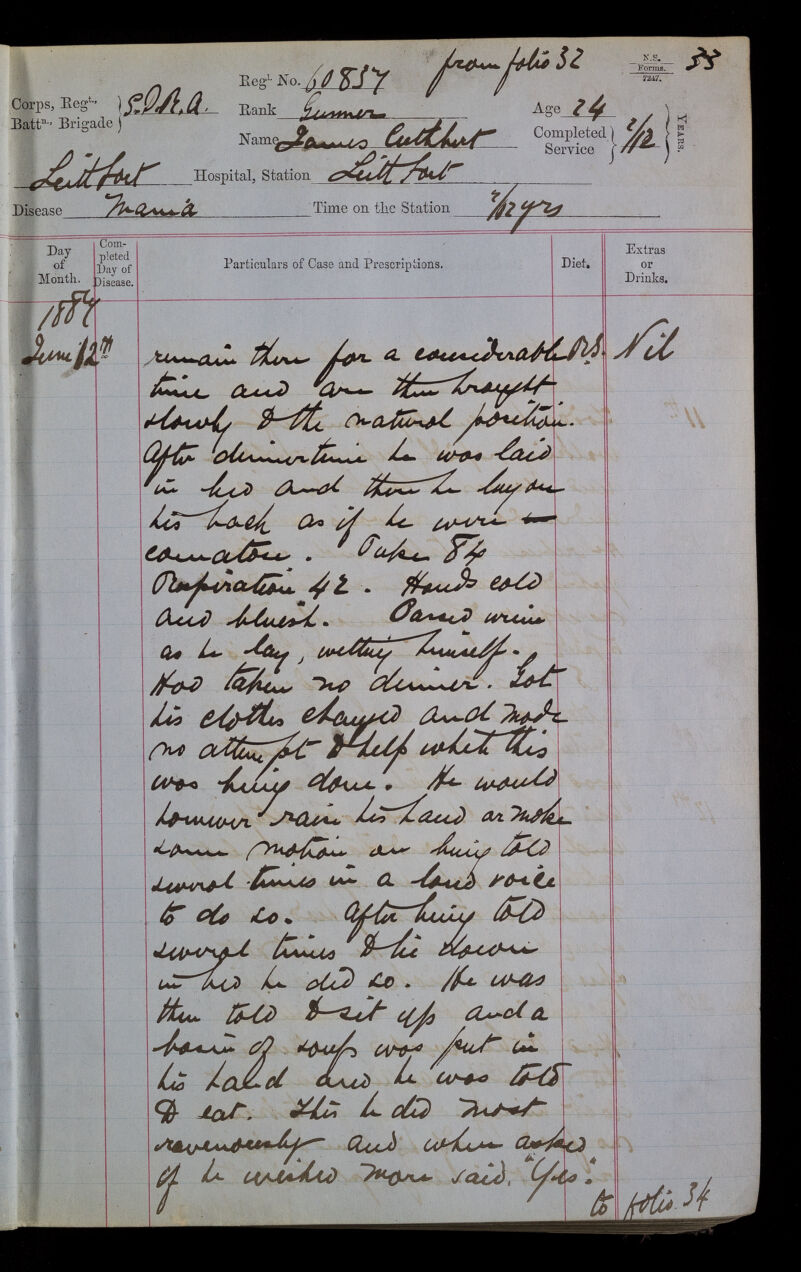 from folio 32
N.S.
Forms.
7247.
33
Regl. No. 60837
Corps, Regt., Battn., Brigade } S.D.R.A.
Rank Gunner
Age 24
Name James Cuthbert
Completed Service } 2/12 } YEARS.
Leith Fort Hospital, Station Leith Fort
Disease Mania Time on the Station 2/12 yrs
Day of Month.
Completed Day of Disease.
Particulars of Case and Prescriptions.
Diet.
Extras or Drinks.
1887
June 12th
remain there for a considerable Nil
time and are then brought
slowly to the natural position.
After dinnertime he was laid
in bed and there he lay on
his back as if he were
comatose. Pulse 84
Respiration 42. Hands cold
and bluish. Passed urine
as he lay, wetting himself.
Had taken no dinner. Got
his clothes changed and made
no attempt to help while this
was being done. He would
however raise his hand or make
some motion on being told
several times in a loud voice
to do so. After being told
several times to lie down
in bed he did so. He was
then told to sit up and a
basin of soup was put in
his hand and he was told
to eat. This he did most
ravenously and when asked
if he wished more said, "Yes".
to folio 34